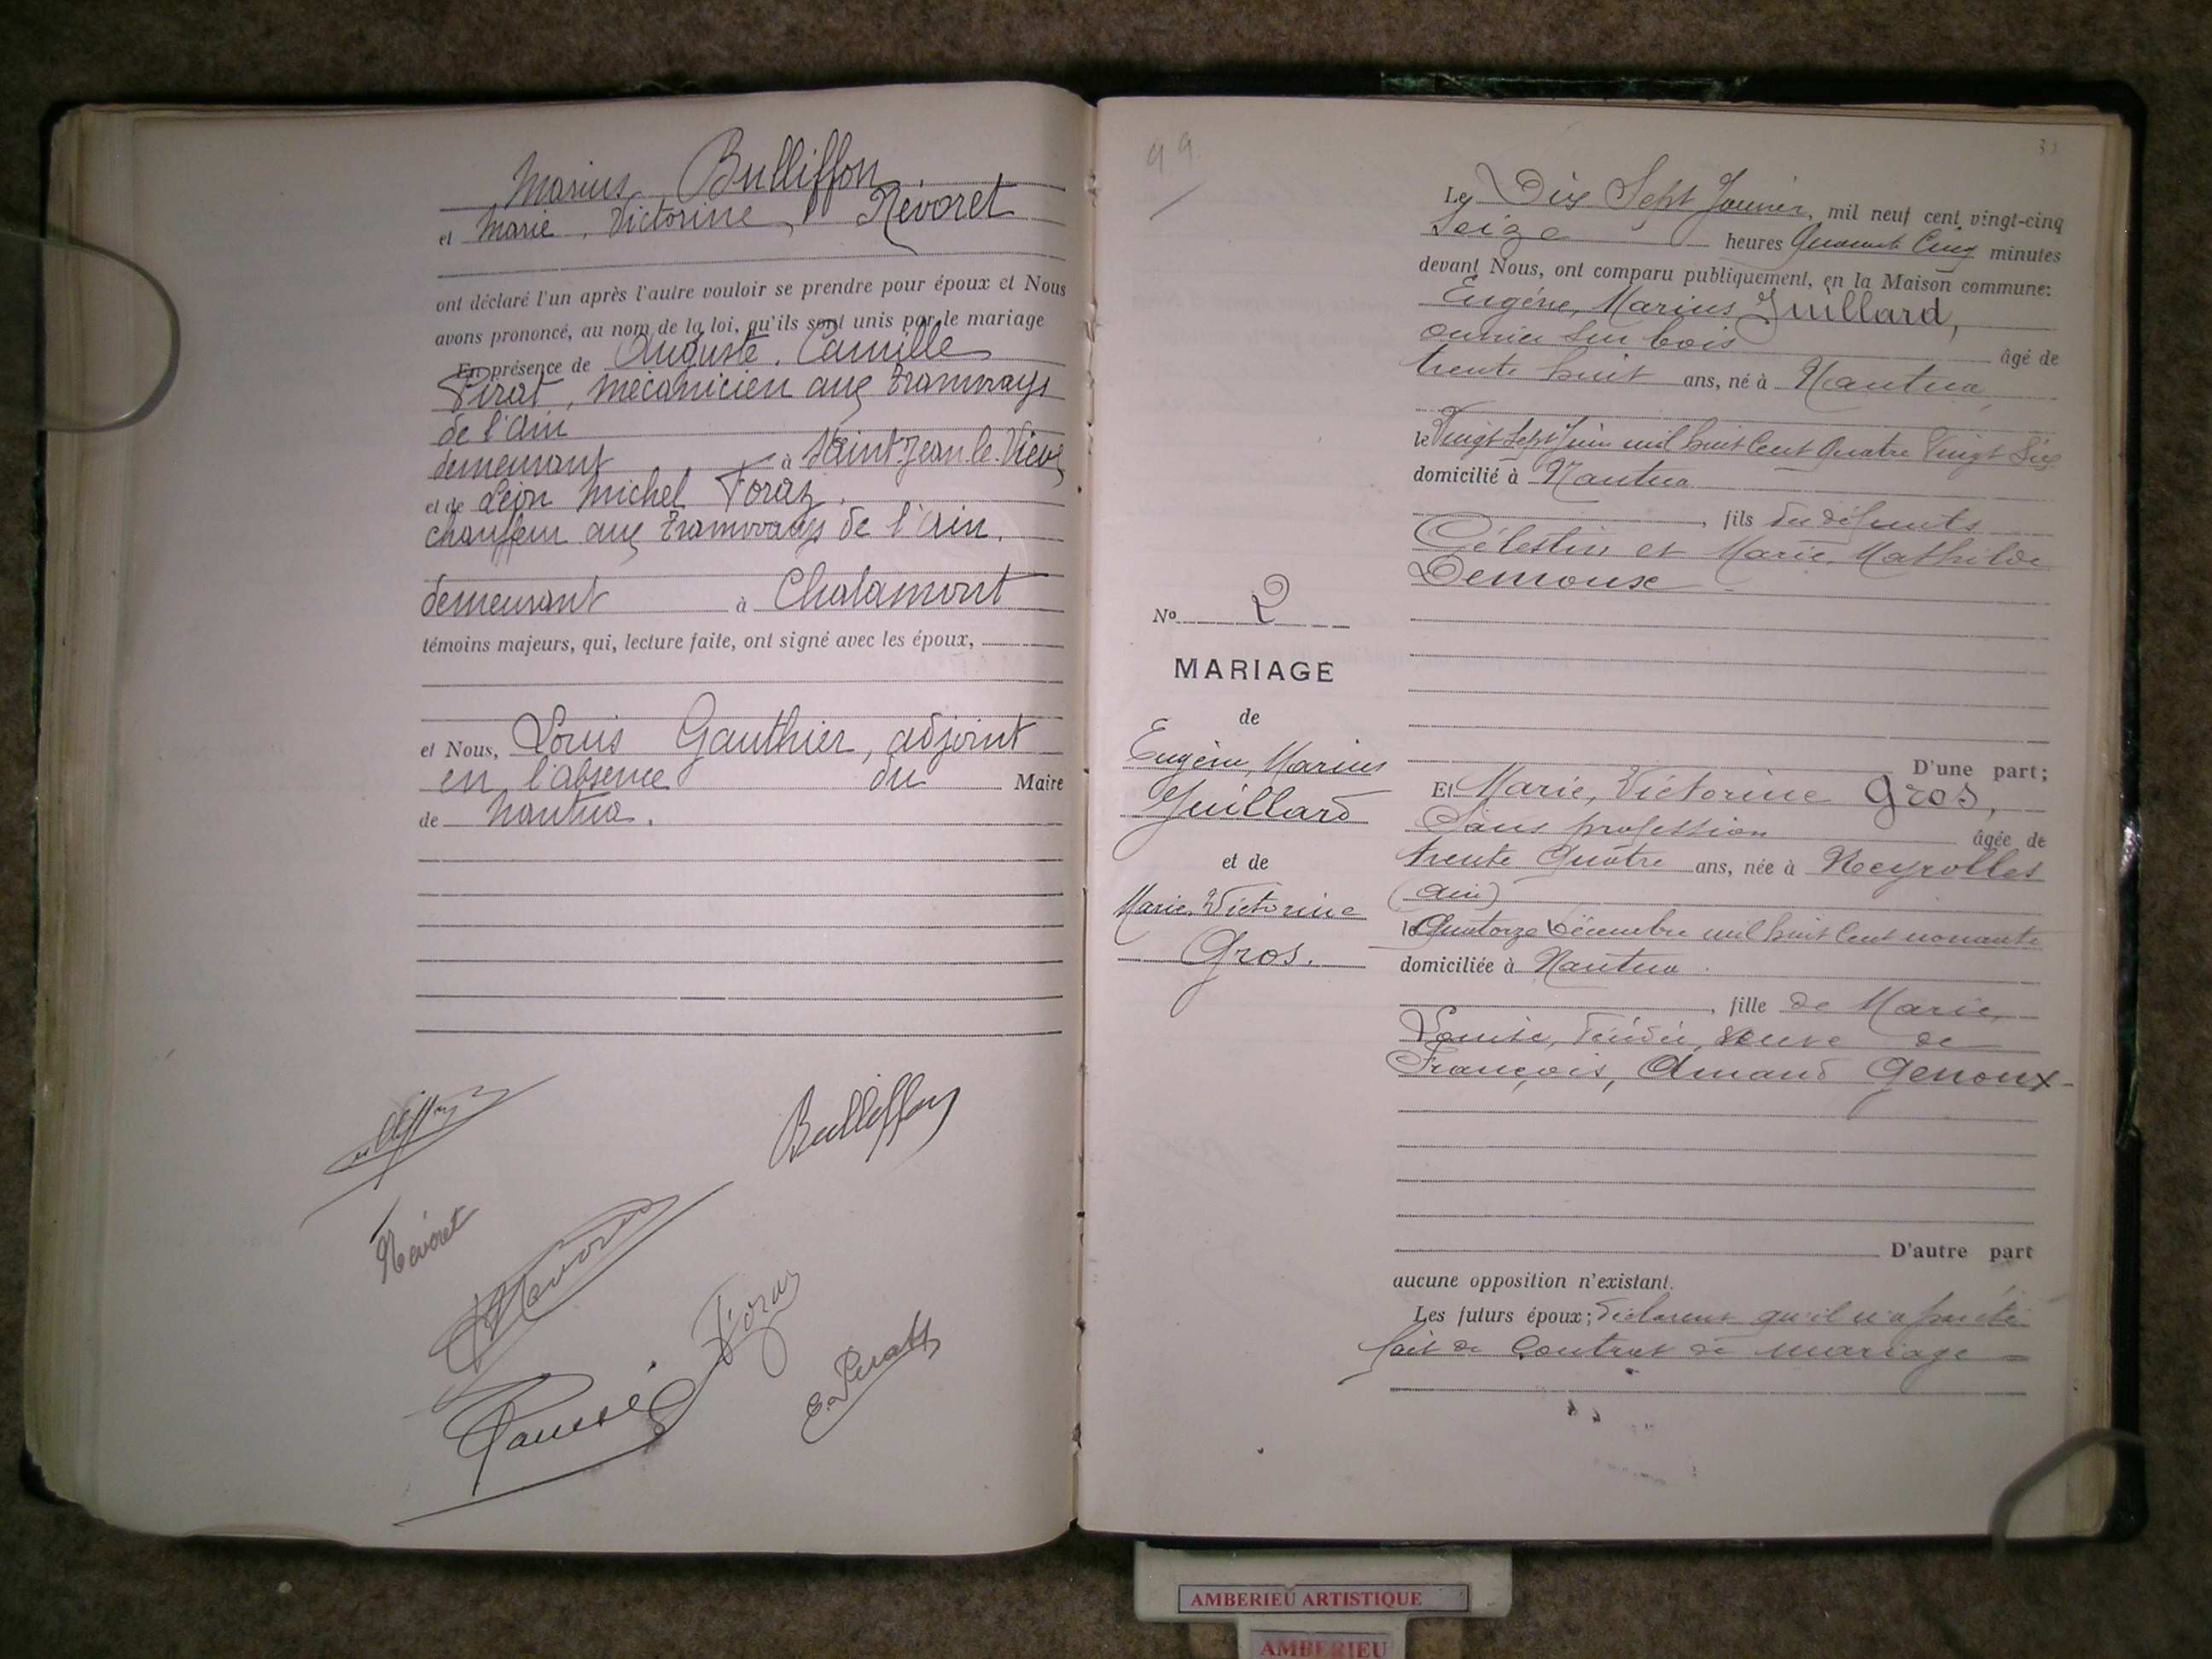 Marius Bulliffon
et Marie, Victorine, Névoret
ont déclaré l'un après l'autre vouloir se prendre pour époux et Nous
avons prononcé, au nom de la loi, qu'ils sont unis par le mariage
En présence de Auguste, Camille
Pirat, mécanicien aux Tramways
de l'Ain
demeurant à Saint-Jean-le-Vieux
et de Léon Michel Foraz,
chauffeur aux Tramways de l'Ain.
demeurant à Chalamont
témoins majeurs, qui, lecture faite, ont signé avec les époux,
et Nous, Louis Gauthier, adjoint
en l'absence du Maire
de Nantua.
Bulliffon
Névoret
Foraz
99
Le Dix Sept Janvier, mil neuf cent vingt-cinq
Seize heures Quarante Cinq minutes
devant Nous, ont comparu publiquement, en la Maison commune:
Eugène, Marius Juillard,
ouvrier sur bois âgé de
trente huit ans, né à Nantua
le Vingt Sept Juin mil huit Cent Quatre Vingt Six
domicilié à Nantua
, fils des défunts
Célestin et Marie, Mathilde
Demouse
No 2
MARIAGE
de
Eugène, Marius
Juillard
et de
Marie, Victorine
Gros.
D'une part;
Et Marie, Victorine Gros,
Sans profession âgée de
trente Quatre ans, née à Neyrolles
(Ain)
le Quatorze Décembre mil huit Cent nonante
domiciliée à Nantua
, fille de Marie,
Louise, veuve de
François, Amand Genoux-
D'autre part
aucune opposition n'existant.
Les futurs époux; déclarent qu'il n'a pas été
fait de Contrat de mariage
AMBERIEU ARTISTIQUE
AMBERIEU